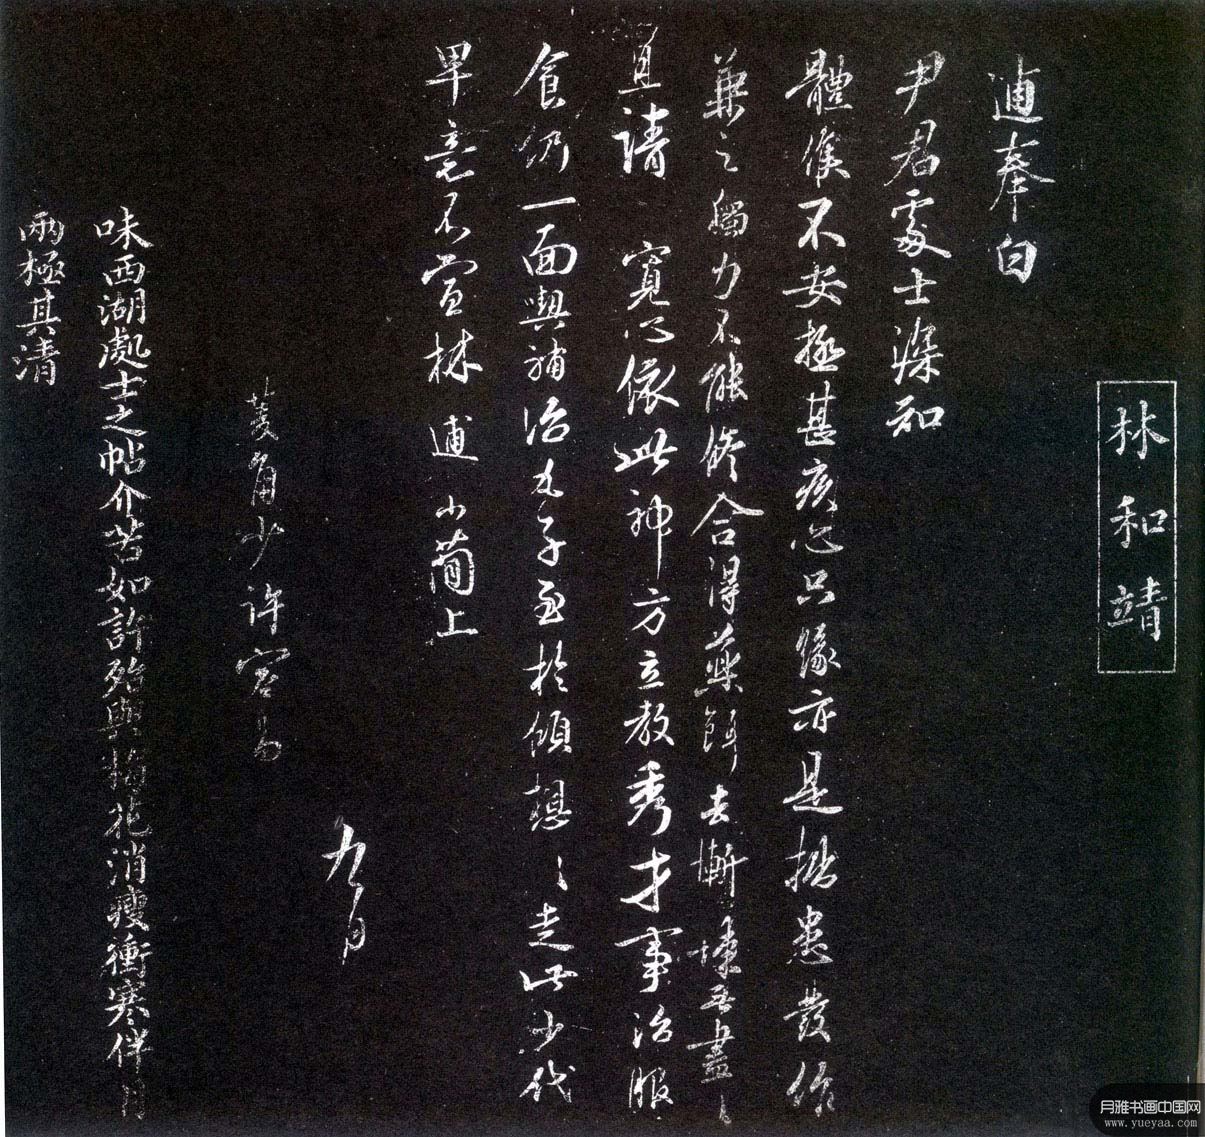 林和靖
逋奉白
尹君處士深知
體候不安極甚疾心只緣亦是拙患發作
兼之觸力不能修合得藥餌去慚悚無盡〻
且請 寬心依此神方立教秀才事治服
食仍一面與補治丸子至於傾想〻走此少代
卑意不宣林逋小簡上
九月
菱角少許容易
味西湖處士之帖介苦如許殆與梅花消瘦衝寒伴月
兩極其清
月雅书画中国网
www.yueyaa.com